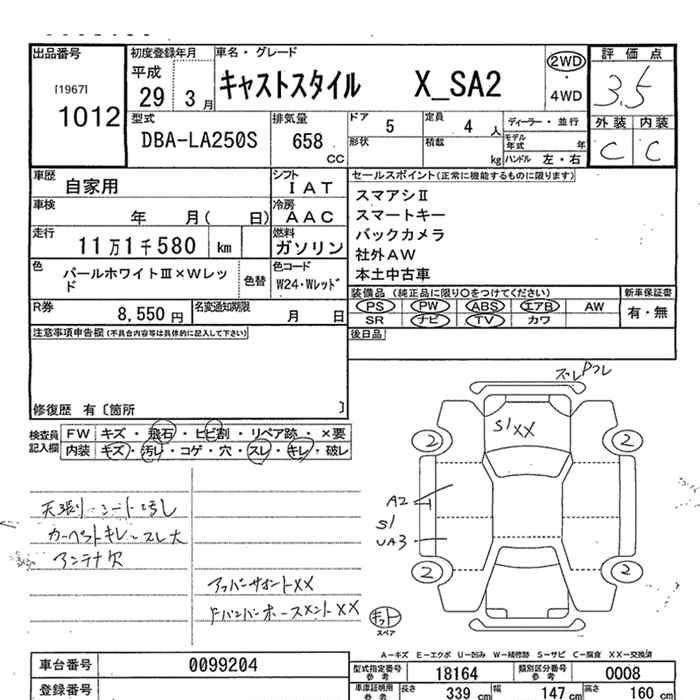 出品番号
[1967]
1012
初度登録年月
平成
29 3月
車名・グレード
キャストスタイル X_SA2
2WD
・
4WD
評価点
3.5
外装 内装
C C
型式
DBA-LA250S
排気量
658
CC
ドア 5
定員 4 人
形状
積載 kg
ディーラー・並行
モデル年式 年
ハンドル 左・右
車歴
自家用
シフト
IAT
車検
年 月( 日)
冷房
AAC
走行
11万1千580 km
燃料
ガソリン
色
パールホワイトⅢ×Wレッド
色替
色コード
W24・Wレッド
R券
8,550 円
名変通知期限
月 日
セールスポイント(正常に機能するものに限ります)
スマアシⅡ
スマートキー
バックカメラ
社外AW
本土中古車
装備品 (純正品に限り○をつけてください)
新車保証書
PS PW ABS エアB AW
SR ナビ TV カワ
有・無
後日品
注意事項申告欄(不具合内容等は具体的に記入して下さい)
修復歴 有〔箇所 〕
検査員記入欄
FW キズ・飛石・ヒビ割・リペア跡・×要
内装 キズ・汚レ・コゲ・穴・スレ・キレ・破レ
天張り シート汚し
カーペットキレ スレ大
アンテナ欠
アッパーサポートXX
FバンパーホースメントXX
ズレ Pフレ
S1 XX
2 2
A2
S1
UA3
2 2
キット
スペア
A－キズ E－エクボ U－凹み W－補修跡 S－サビ C－腐食 XX－交換済
車台番号
0099204
登録番号
型式指定番号
参考
18164
類別区分番号
参考
0008
車庫証明用
参考
長さ 339 cm
幅 147 cm
高さ 160 cm